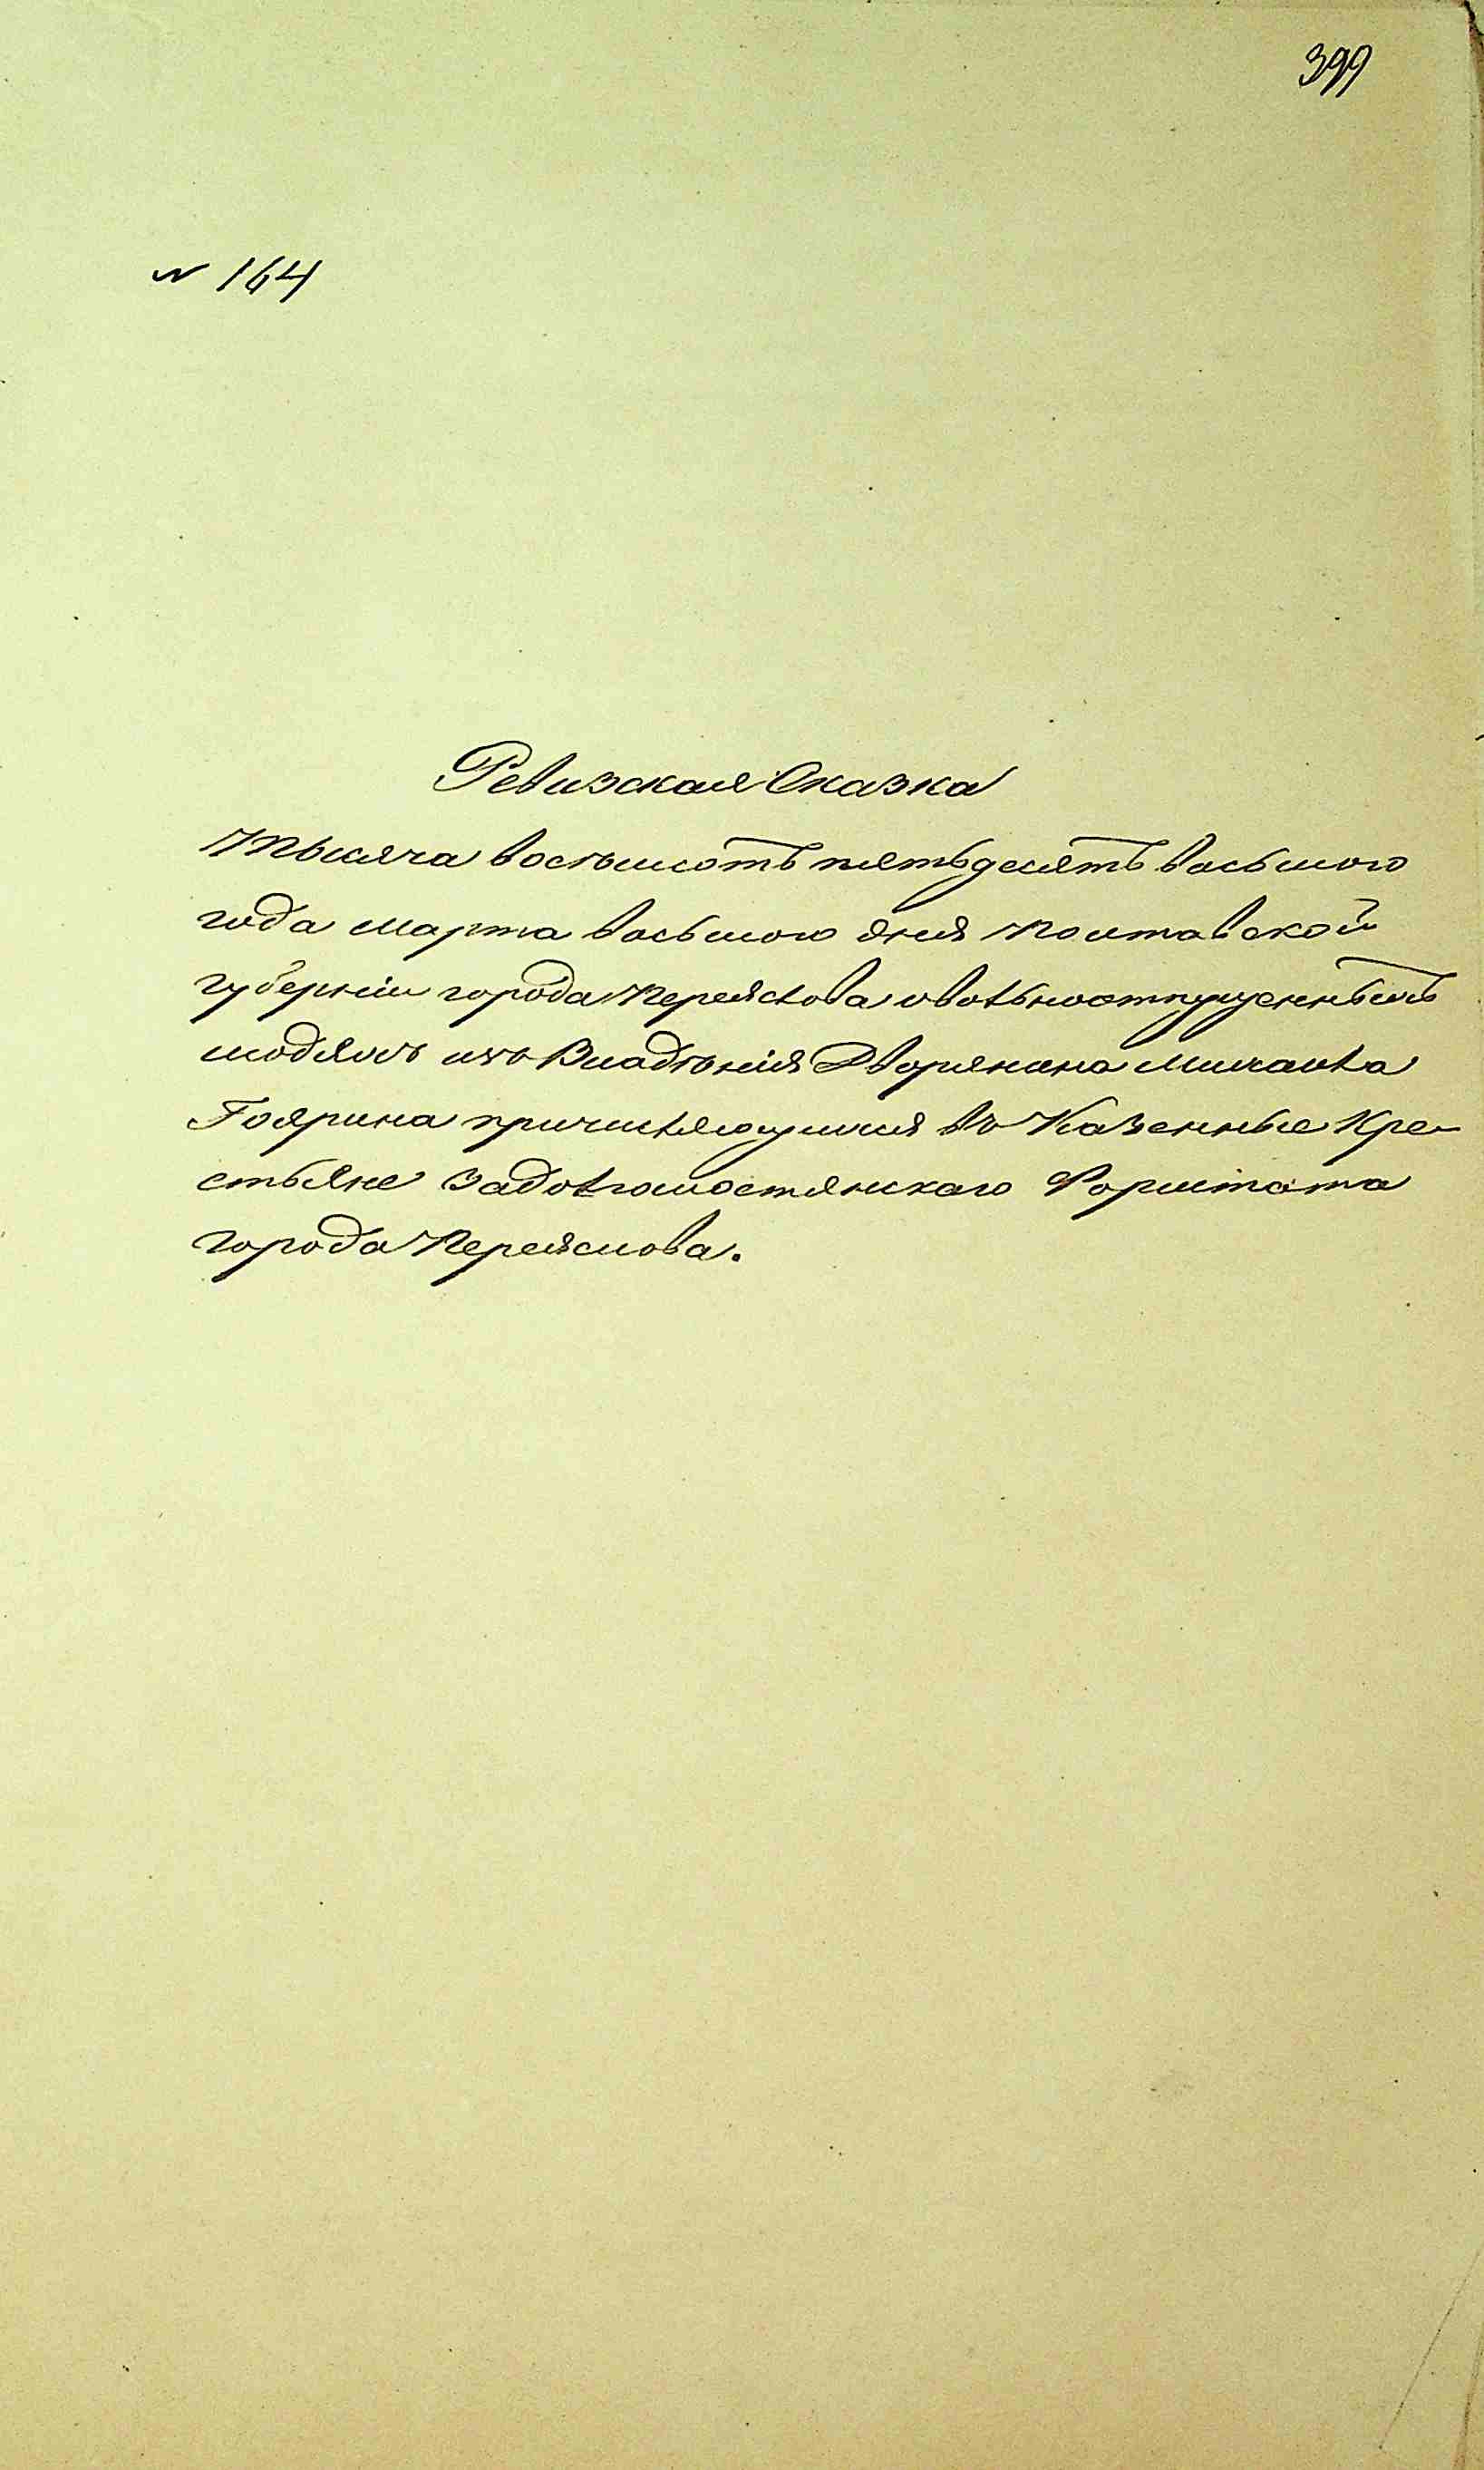 399
№ 164
Ревизская Сказка
Тысяча восемьсотъ пятьдесятъ восьмого
года марта восьмого дня Полтавской
губерніи города Переяслова о вольноотпущенныхъ
людяхъ изъ Владѣнія Дворянина Михаила
Гоярина причисляющихся въ Казенные Кре-
стьяне Задолгомостянскаго Форштата
города Переяслова.